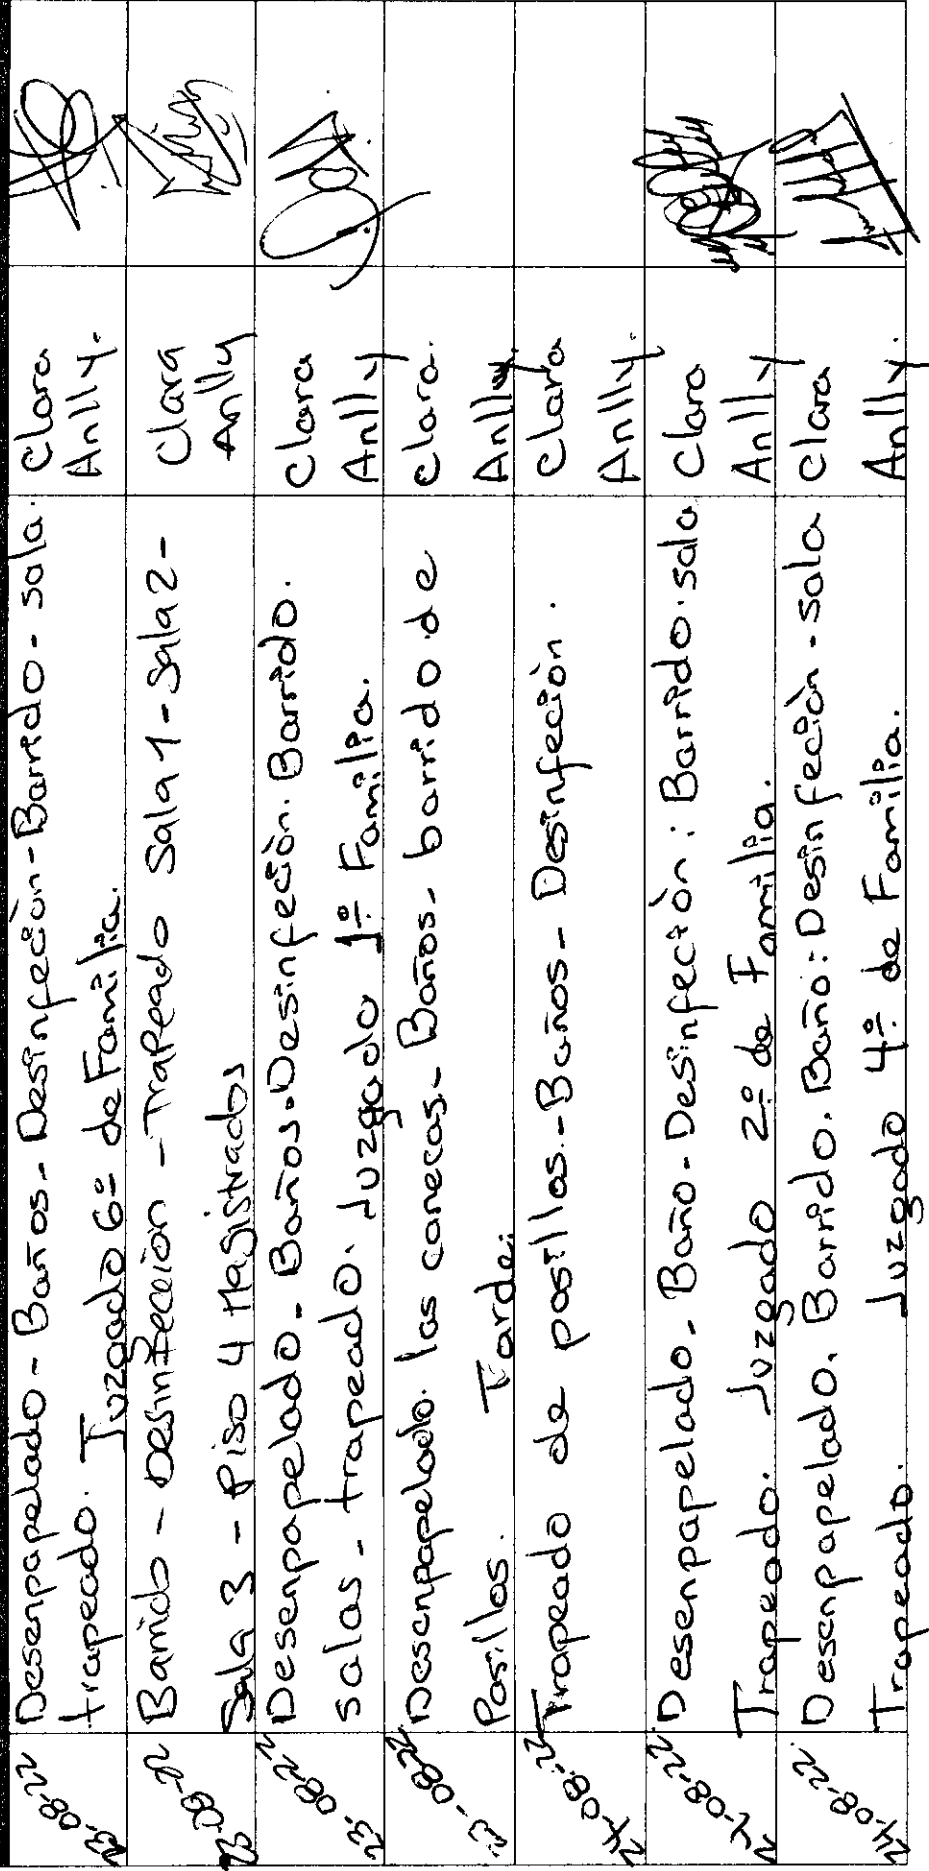 23-08-22 Desenpapelado - Baños - Desinfeción - Barrido - sala. Clara
trapeado. Juzgado 6º de Familia. Anlly.
23-08-22 Barrido - Desinfeccion - Trapeado Sala 1 - Sala 2 - Clara
Sala 3 - Piso 4 Magistrados Anlly
23-08-22 Desenpapelado - Baños. Desinfeción. Barrido. Clara
salas - trapeado. Juzgado 1º Familia. Anlly
23-08-22 Desenpapelado. las canecas - Baños - barrido de Clara.
Pasillos. Tarde. Anlly.
24-08-22 Trapeado de pasillos. - Baños - Desinfeción. Clara
Anlly.
24-08-22 Desenpapelado. Baño - Desinfeción: Barrido. sala Clara
Trapeado. Juzgado 2º de Familia. Anlly
24-08-22. Desenpapelado. Barrido. Baño: Desinfeción - sala Clara
Trapeado. Juzgado 4º de Familia. Anlly.